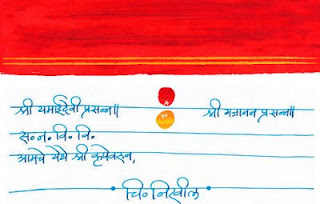 श्री यमाईदेवी प्रसन्न॥ श्री गजानन प्रसन्न॥
स.न.वि.वि.
आमचे येथे श्री कृपेकरून,
चि. नितील